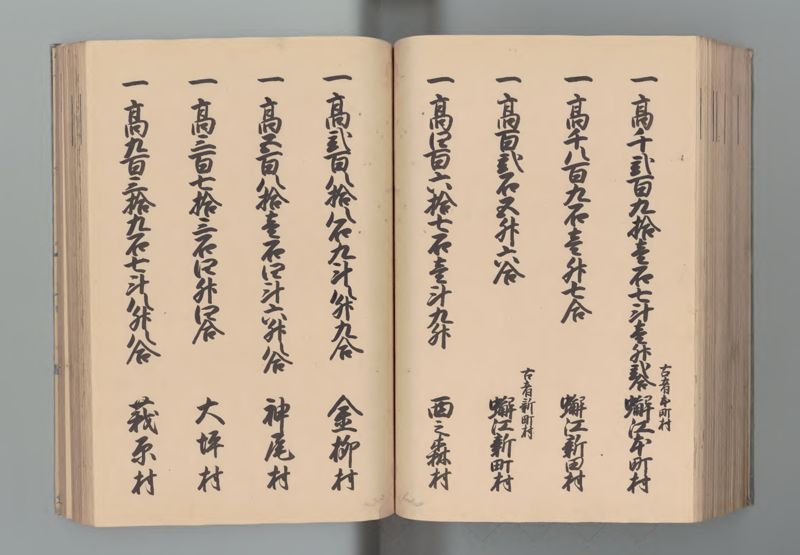 一高千弐百九拾壱石七斗壱升弐合 古者本町村 蠏江本町村
一高千八百九石壱升七合 蠏江新田村
一高百弐石五升六合 古者新町村 蠏江新町村
一高四百六拾七石壱斗九升 西之森村
一高弐百八拾八石九斗八升九合 金柳村
一高五百八拾壱石四斗六升八合 神尾村
一高三百七拾三石四升四合 大坪村
一高九百三拾九石七斗八升八合 莪原村